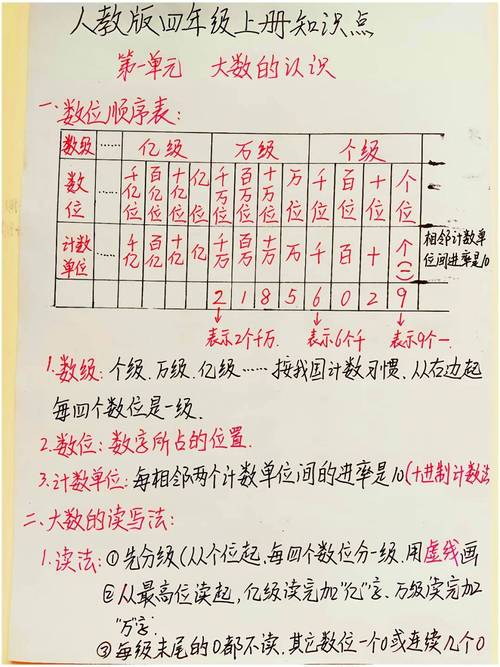 人教版四年级上册知识点
第一单元 大数的认识
一、数位顺序表:
数级 …… 亿级 万级 个级
数位 …… 千亿位 百亿位 十亿位 亿位 千万位 百万位 十万位 万位 千位 百位 十位 个位
计数单位 …… 千亿 百亿 十亿 亿 千万 百万 十万 万 千 百 十 个(一)
相邻计数单
位间进率是10
2 1 8 5 6 0 2 9
表示2个千万. 表示6个千 表示9个一.
1.数级: 个级.万级.亿级…… 按我国计数习惯.从右边起
每四个数位是一级.
2.数位: 数字所占的位置.
3.计数单位: 每相邻两个计数单位间的进率是10(十进制计数法
二、大数的读写法:
1.读法: ①先分级(从个位起.每四个数位分一级.用虚线画
②从最高位读起,亿级读完加"亿"字.万级读完加
"万"字.
③每级末尾的0都不读.其它数位一个0或连续几个0